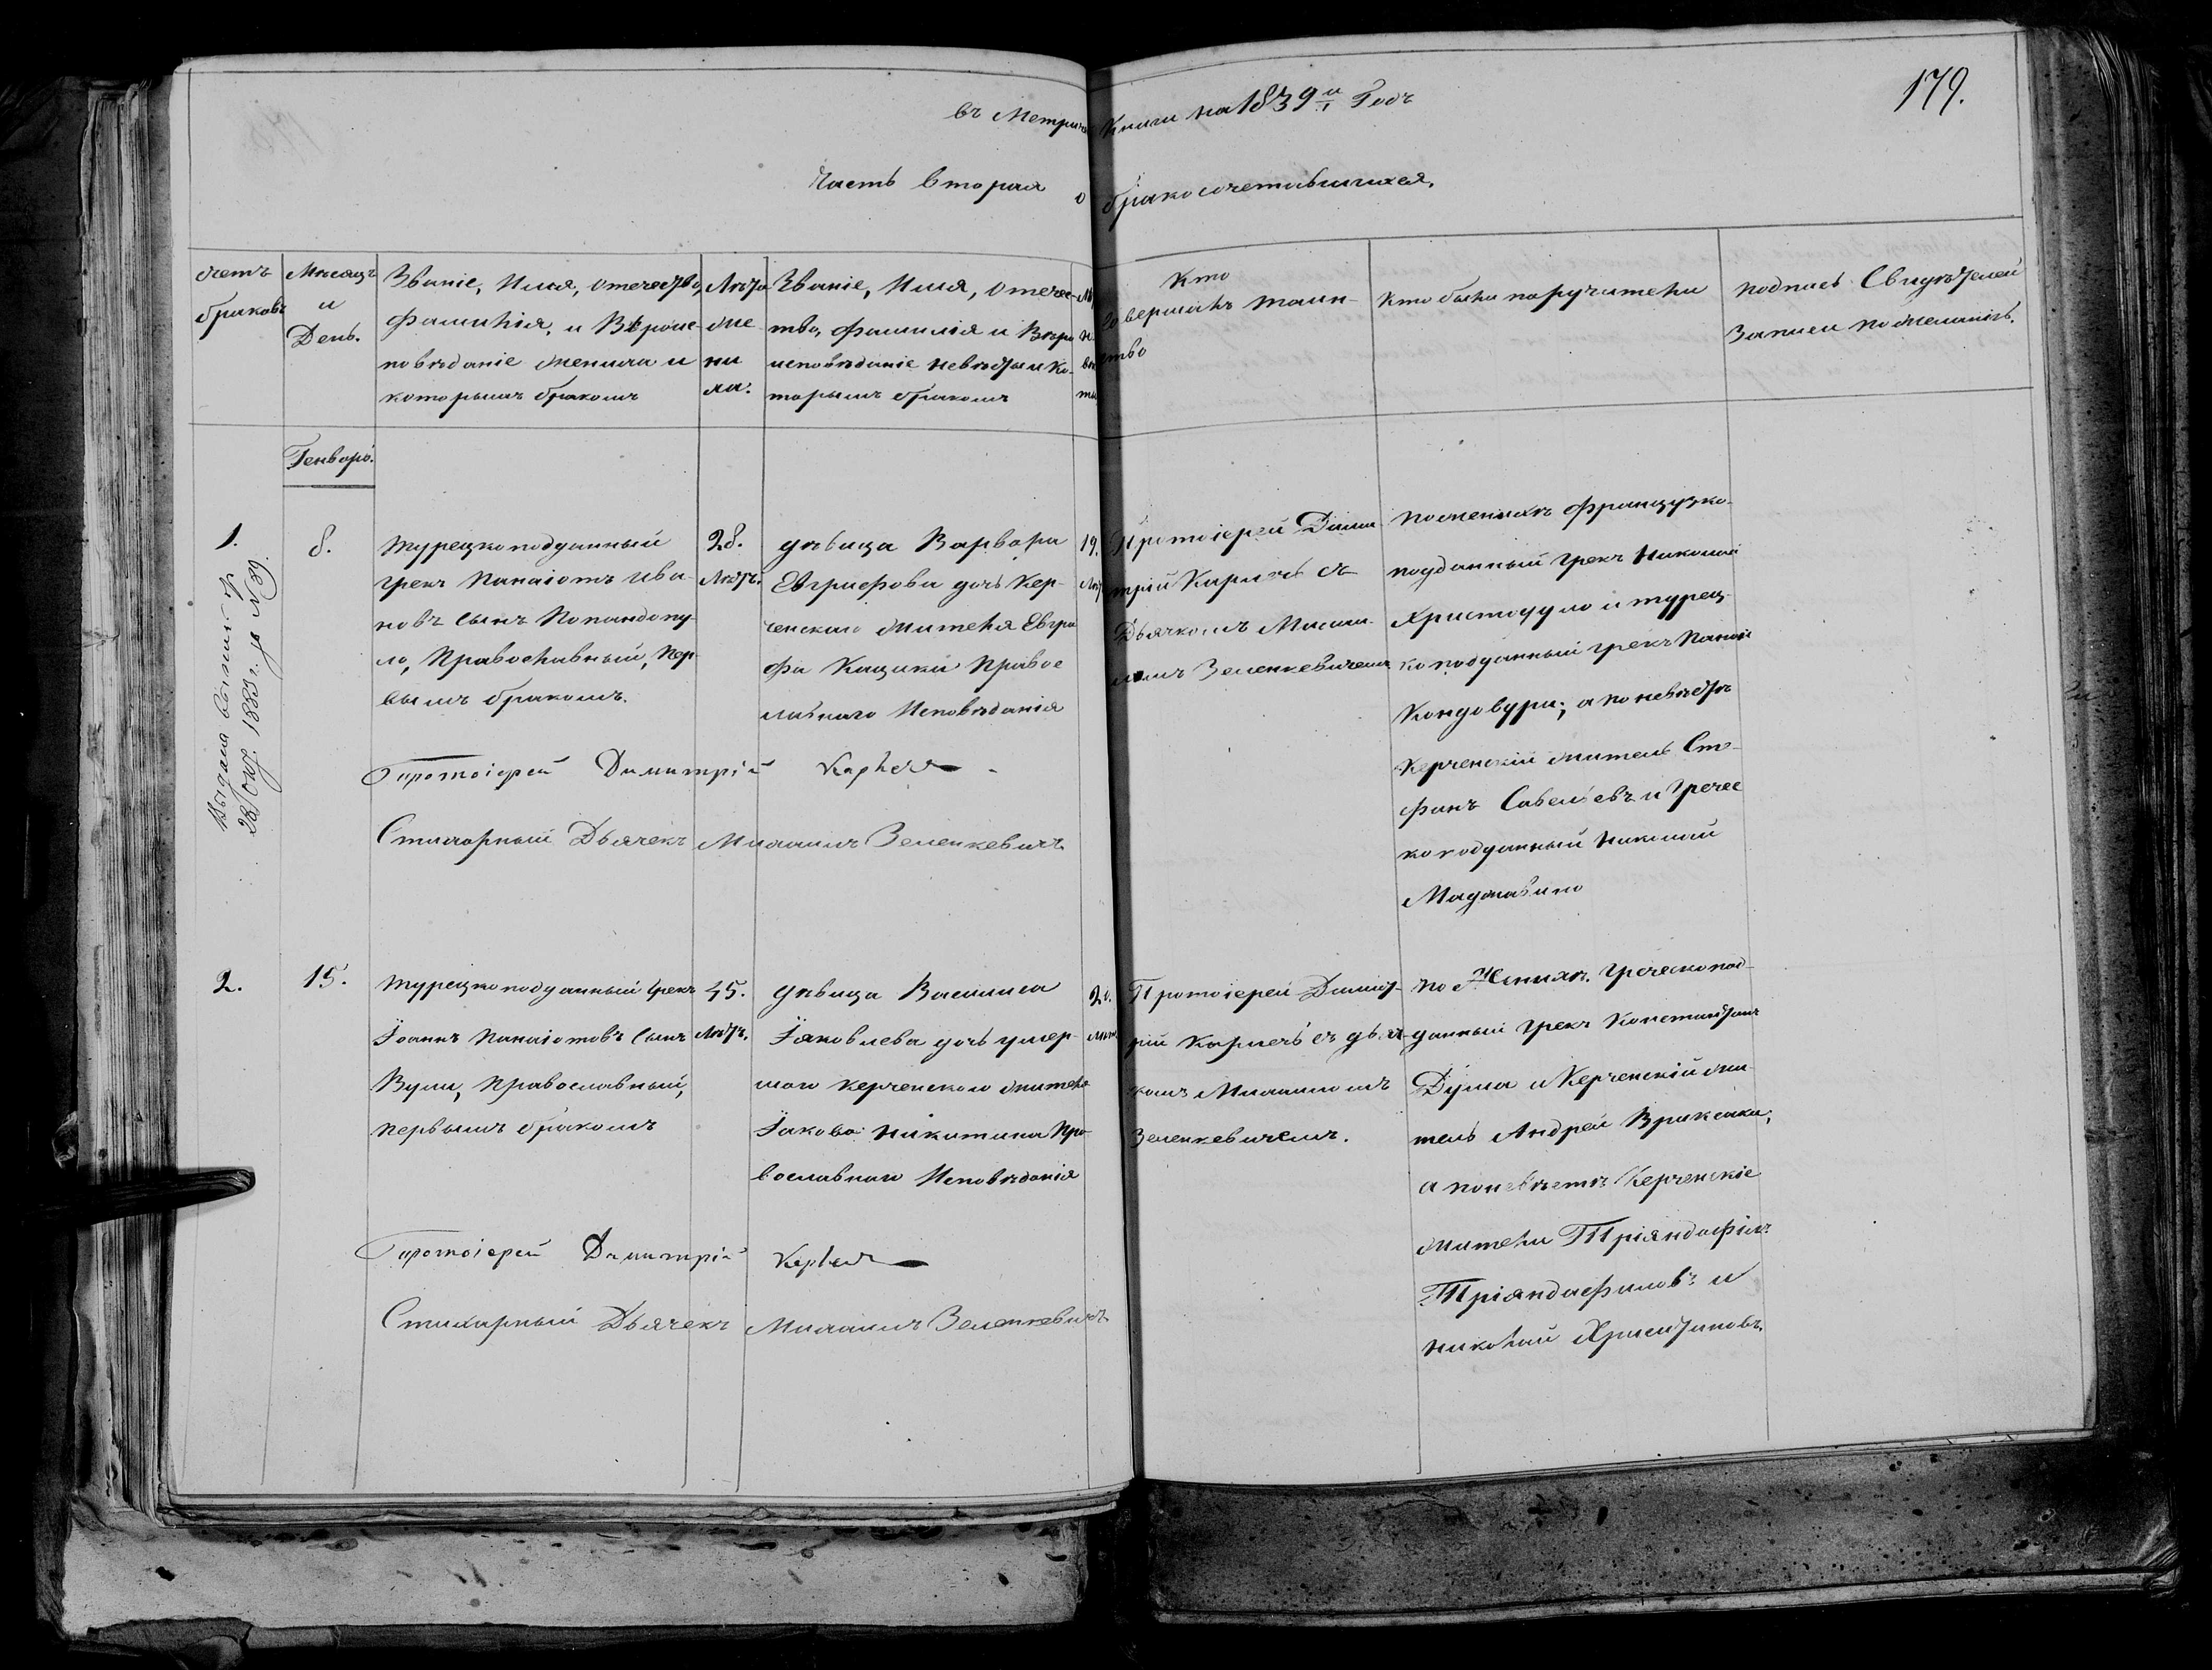 179.
въ Метриче Книги на 1839й Годъ
Часть Вторая о бракосочетавшихся.
счетъ
браковъ
Мѣсяцъ
и
День.
Званіе, Имя, отечество,
фамилія, и Вѣроис-
повѣданіе жениха и
которымъ бракомъ
Лѣта
же
ни
ха.
Званіе, Имя, отечес-
тво, фамилія и Вѣро
исповѣданіе невѣсты и ко-
торымъ бракомъ
Кто
совершалъ таин-
ство
Кто были поручители
подпись Свидѣтелей
Записи по желанію.
Генварь.
1.
8.
турецкоподданный
грекъ Панаіотъ Ива-
новъ сынъ Попандопу-
ло, Православный, пер-
вымъ бракомъ.
28.
лѣтъ.
дѣвица Варвара
Евграфова дочь Кер-
ченскаго жителя Евгра
фа Кацики Правос
лавнаго Исповѣданія
19.
лѣт
Протоіерей Дими
трій Карпечь съ
Дьячкомъ Михаи-
ломъ Зеленкевичемъ
по женихѣ французко-
подданный грекъ Николай
Христодуло и турец-
коподданный грекъ Панаіо
Кондовури; а по невѣстѣ
Керченскій житель Сте-
фанъ Савельевъ и Гречес
коподданный Николай
Выдана выпись
28 Окт. 1883 г. за №89.
Протоіерей Димитрій
Стихарный Дьячекъ Михаилъ Зеленкевичъ
2.
15.
турецкоподданный грекъ
Іоаннъ Панаіотовъ сынъ
Вули, православный,
первымъ бракомъ
45.
лѣтъ.
дѣвица Василиса
Іяковлева дочь умер-
шаго керченскаго жителя
Іакова Никитина Пра-
вославнаго Исповѣданія
20.
Протоіерей Димит-
рій Карпечь съ дьяч-
комъ Михаиломъ
Зеленкевичемъ.
по Женихѣ. Греческопод-
данный грекъ Константинъ
Дума и Керченскій жи-
тель Андрей
а поневѣстѣ Керченскіе
жители Тріандафилъ
Тріандафиловъ и
Николай Христановъ.
Протоіерей Димитрій
Стихарный Дьячекъ Михаилъ Зеленкевичъ